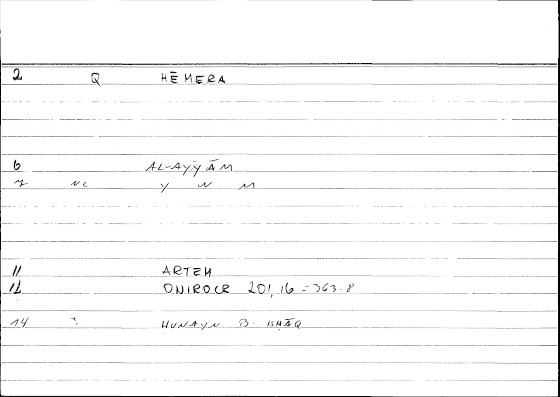 2 Q HĒMERA
6 AL-AYYĀM
7 NC Y W M
11 ARTEM
12 ONIROCR 201,16 = 363.8
14 HUNAYN B. ISHĀQ